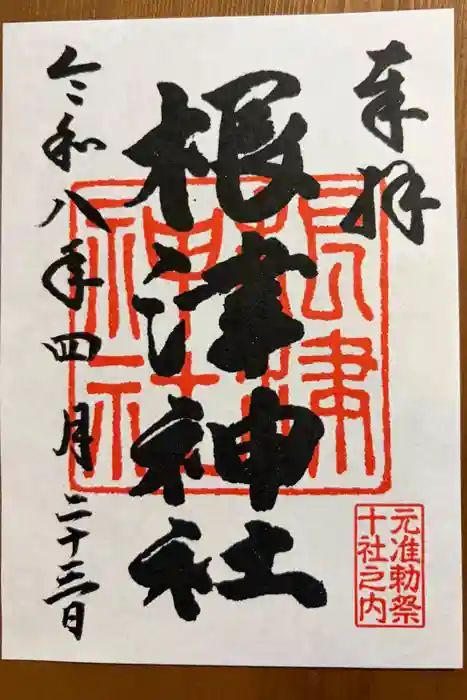 奉拝
根津神社
令和八年四月二十三日
根津
神社
元准勅祭
十社之内